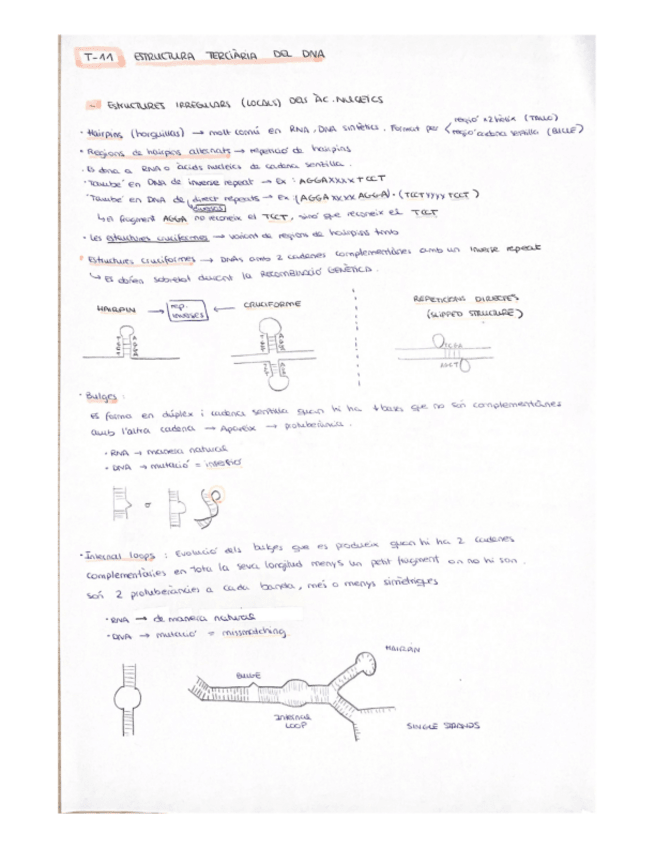 T-11 ESTRUCTURA TERCIÀRIA DEL DNA
- ESTRUCTURES IRREGULARS (LOCALS) DELS ÀC. NUCLEICS
· Hairpins (horquillas) → molt comú en RNA, DNA sintètics. Format per < regió x2 hèlix (TALLO)
regió cadena senzilla (BUCLE)
· Regions de hairpins alternats → repetició de hairpins
· Es dona a RNA o àcids nucleics de cadena senzilla.
· També en DNA de inverse repeat → Ex: AGGAXXXXTCCT
· També en DNA de direct repeats → Ex: (AGGAXXXXAGGA)·(TCCTYYYYTCCT)
↳ El fragment AGGA no reconeix el TCCT, sino que reconeix el TCCT
· Les estructures cruciformes → variant de regions de hairpins
· Estructures cruciformes → DNAs amb 2 cadenes complementàries amb un inverse repeat
↳ Es donen sobretot durant la RECOMBINACIÓ GENÈTICA.
HAIRPIN → rep. inverses ← CRUCIFORME
REPETICIONS DIRECTES
(SLIPPED STRUCTURE)
· Bulges:
es forma en dúplex i cadena senzilla quan hi ha bases que no són complementàries
amb l'altra cadena → Apareix → protuberància.
· RNA → manera natural
· DNA → mutació = inserció
=
· Internal loops: Evolució dels bulges que es produeix quan hi ha 2 cadenes
complementàries en tota la seva longitud menys un petit fragment on no hi són.
són 2 protuberàncies a cada banda, més o menys simètrigues
· RNA → de manera natural
· DNA → mutació = missmatching
HAIRPIN
BULGE
INTERNAL
LOOP
SINGLE STRANDS